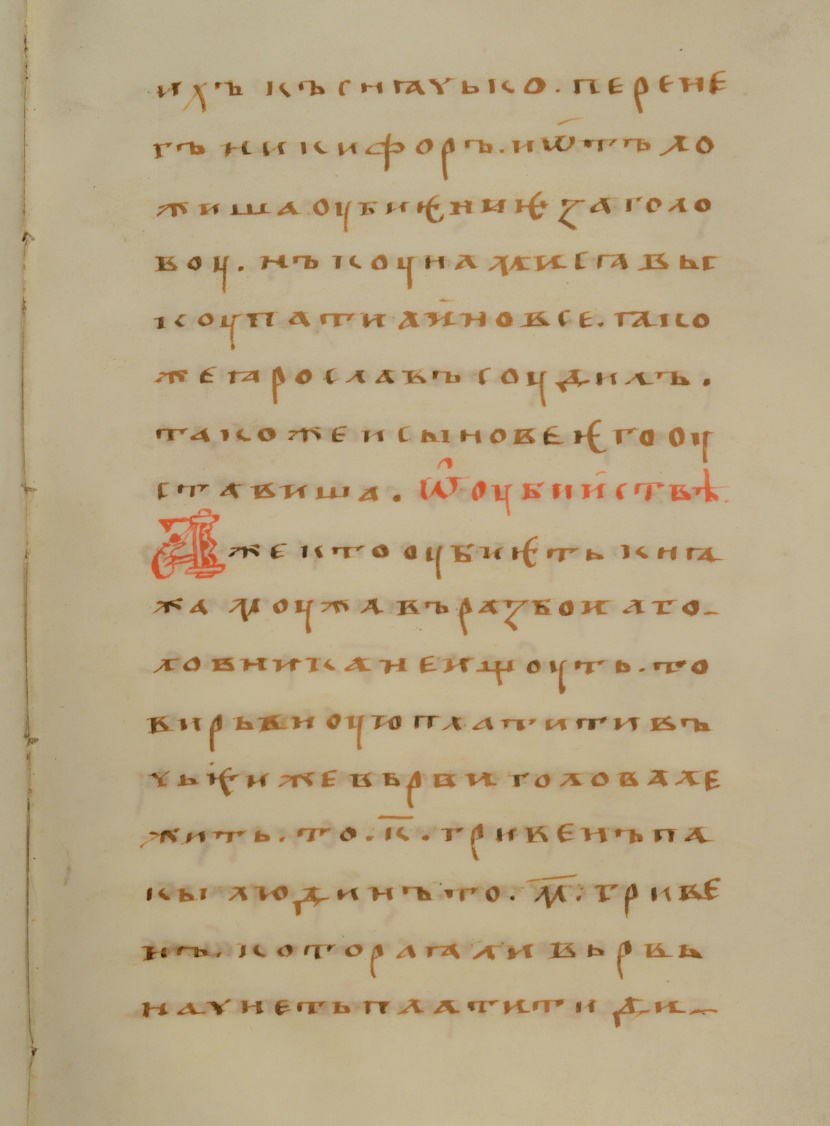 ихъ къснꙗчько. перене
гъ никифоръ. и ѿтъло
жиша оубиѥниѥ за голо
воу. нъ коунами сꙗ вы
коупати а ино все. ꙗко
же ꙗрославъ соудилъ.
такоже и сынове ѥго оу
ставиша. Ѿ оубииствѣ
Аже кто оубиѥть кнꙗ
жа моужа въ разбои а го
ловника не ищоуть. то
вирьвноую платити въ
чьѥи же вьрви голова ле
жить. то. к҃. гривенъ па
кы людинъ то. м҃. гриве
нъ. котораꙗ ли вьрвь
начнеть платити ди